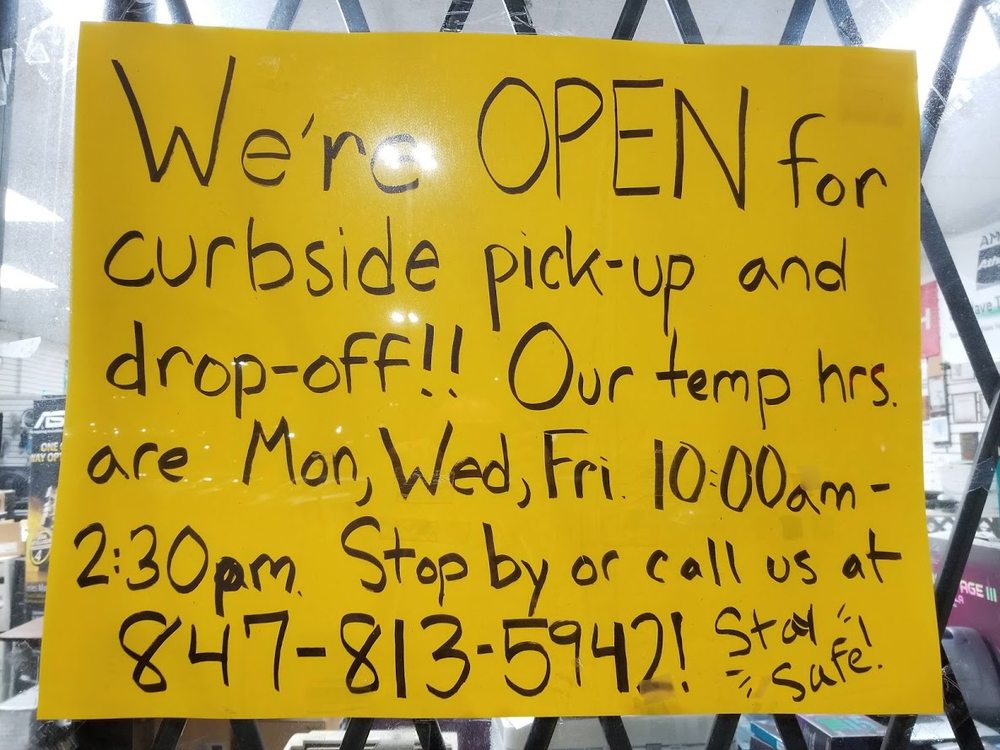 We're OPEN for
curbside pick-up and
drop-off!! Our temp hrs.
are Mon, Wed, Fri. 10:00am-
2:30pm. Stop by or call us at
847-813-5942! Stay
Safe!